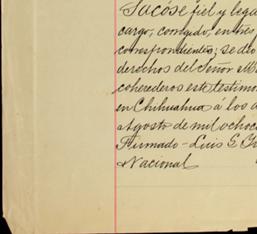 Sacóse fiel y lega
cargo, corregido, en tres
correspondientes; se dió
derechos del Señor
coherederos este testimo
en Chihuahua á los
Agosto de mil ochoc
Firmado - Luis G.
Nacional